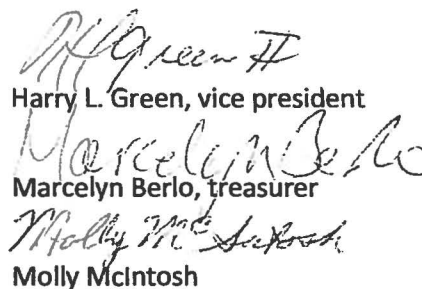 HLGreen II
Harry L. Green, vice president
Marcelyn Berlo
Marcelyn Berlo, treasurer
Molly McIntosh
Molly McIntosh